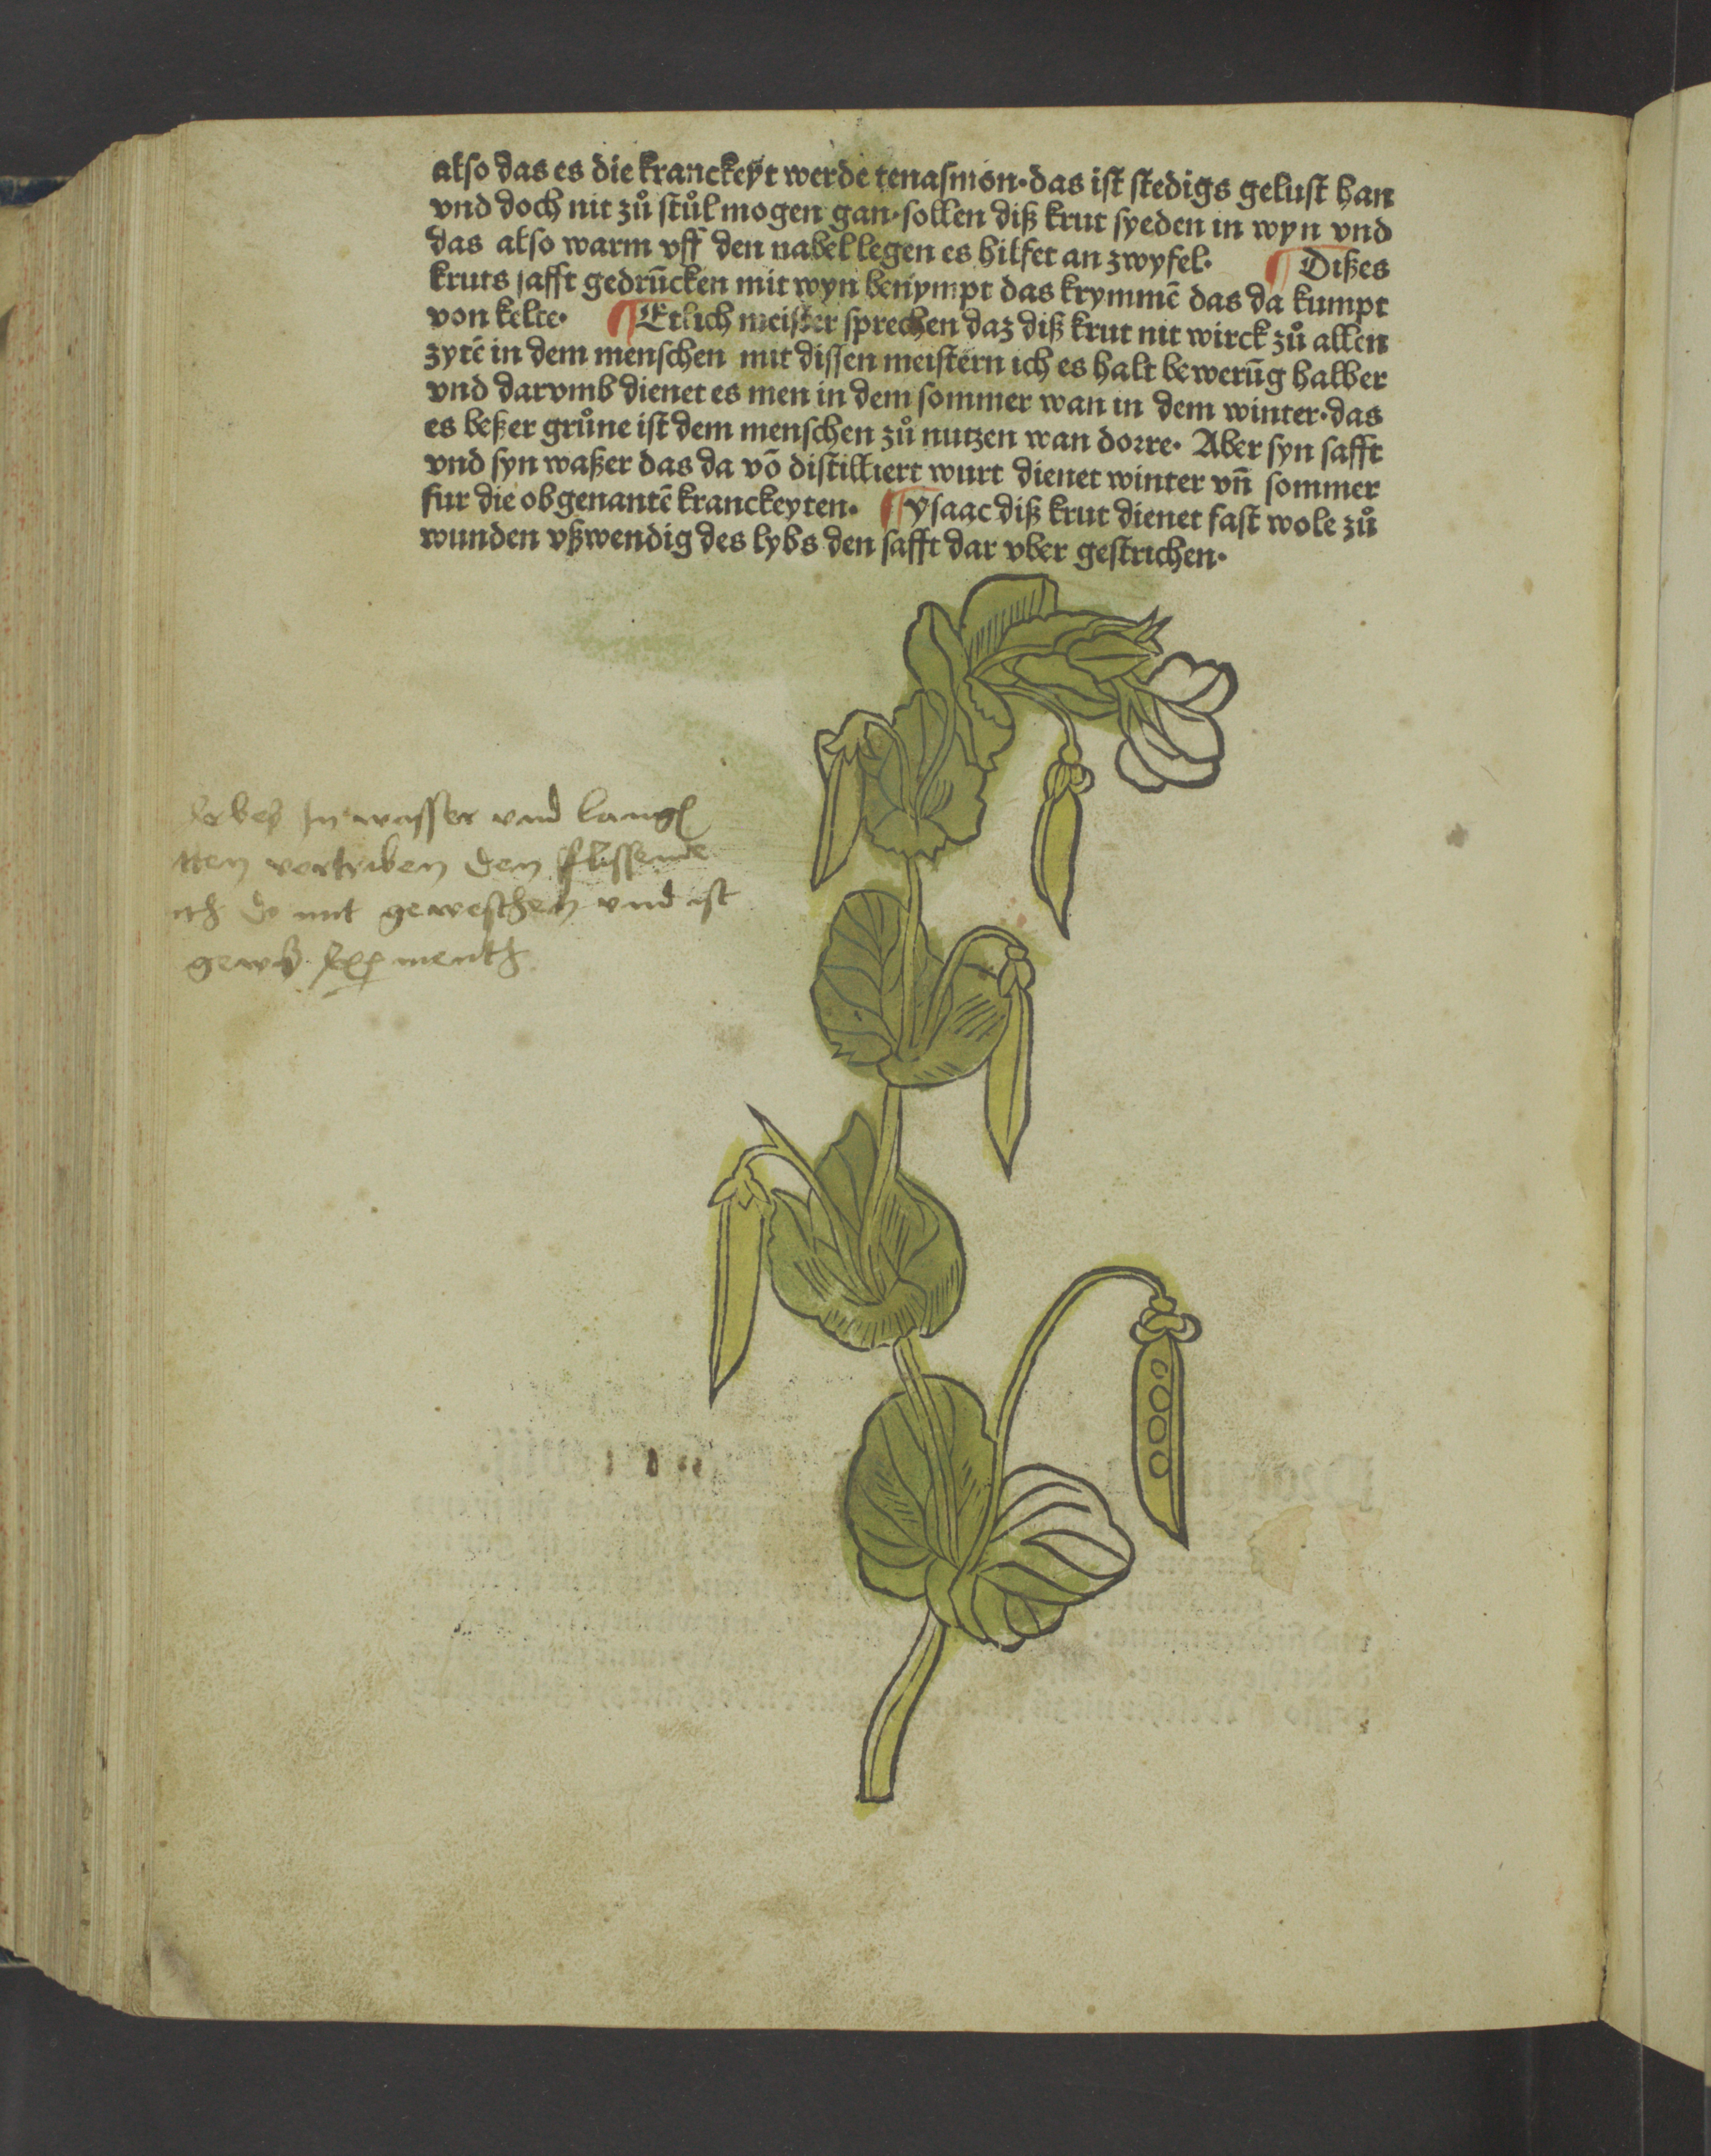 also das es die kranckeyt werde tenasmon·das ist stedigs gelust han
vnd doch nit zů stůl mogen gan·sollen diß krut syeden in wyn vnd
das also warm vff den nabel legen es hilfet an zwyfel· ¶ Dißes
kruts safft gedrūcken mit wyn benympt das krymmē das da kumpt
von kelte· ¶ Etlich meister sprechen daz diß krut nit wirck zů allen
zytē in dem menschen mit dissen meistern ich es halt bewerūg halber
vnd darvmb dienet es men in dem sommer wan in dem winter·das
es beßer grůne ist dem menschen zů nutzen wan dorre· Aber syn safft
vnd syn waßer das da vō distilliert wurt dienet winter vn̄ sommer
fur die obgenantē kranckeyten· ¶ Ysaac diß krut dienet fast wole zů
wunden vßwendig des lybs den safft dar vber gestrichen·
In wasser vnd
vertriben den flissende
mit geweschen vnd ist